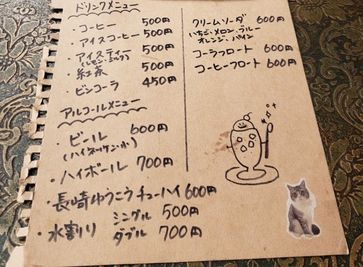 ドリンクメニュー
・コーヒー 500円
・アイスコーヒー 500円
・アイスティー 500円
(レモン・ミルク)
・紅茶 500円
・ビンコーラ 450円
アルコールメニュー
・ビール 600円
(ハイネッケン小)
・ハイボール 700円
・長崎ゆうこうチューハイ 600円
・水割り シングル 500円
ダブル 700円
クリームソーダ 600円
いちご・メロン・ブルー
オレンジ・パイン
コーラフロート 600円
コーヒーフロート 600円